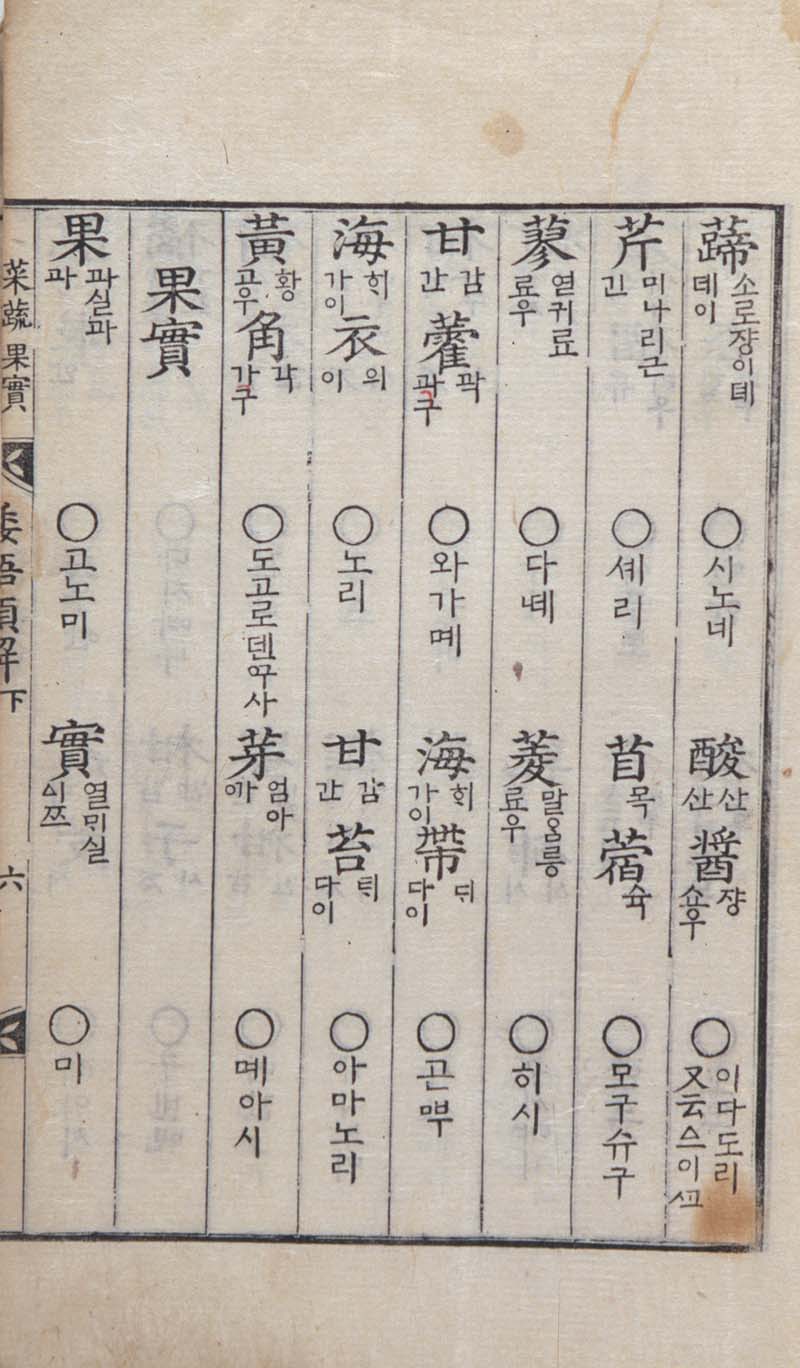 蹄 소로쟝이뎨 데이 ○시노녜 酸 산 산 醬 쟝 쇼우 ○이다도리 又云스이
芹 미나리근 긴 ○셰리 苜 목 蓿 슉 ○모구슈구
蓼 엳귀료 료우 ○다뎨 菱 말옴릉 료우 ○히시
甘 감 간 藿 곽 곽구 ○와가몌 海 ᄒᆡ 가이 帶 ᄃᆡ 다이 ○곤ᄲᅮ
海 ᄒᆡ 가이 衣 의 이 ○노리 甘 감 간 苔 ᄐᆡ 다이 ○아마노리
黃 황 고우 角 각 가구 ○도고로 芽 엄아 ○몌아시
果實
果 과실과 과 ○고노미 實 열ᄆᆡ실 시쯔 ○미
菜蔬 果實 倭語類解下 六